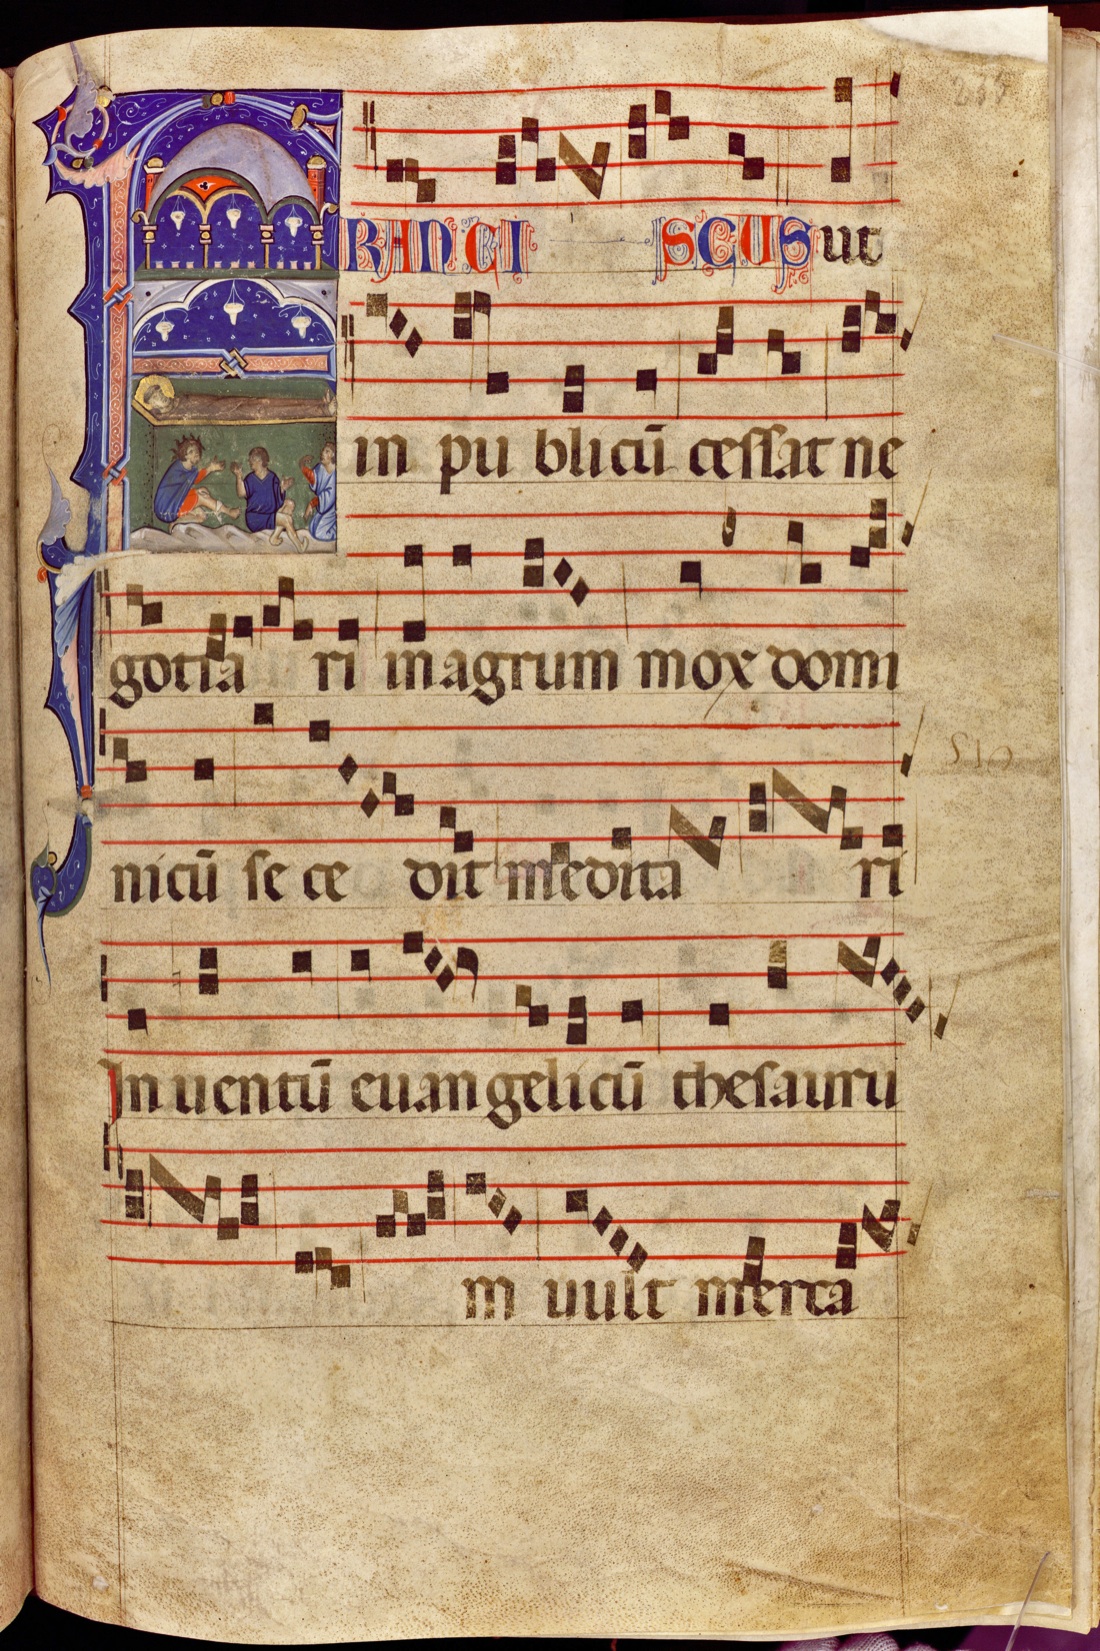 FRANCI SCUS ut
in pu blicū cessat ne
gotia ri in agrum mox domi
nicū se ce dit medita ri
In uentū euan gelicū thesauru
m uult merca